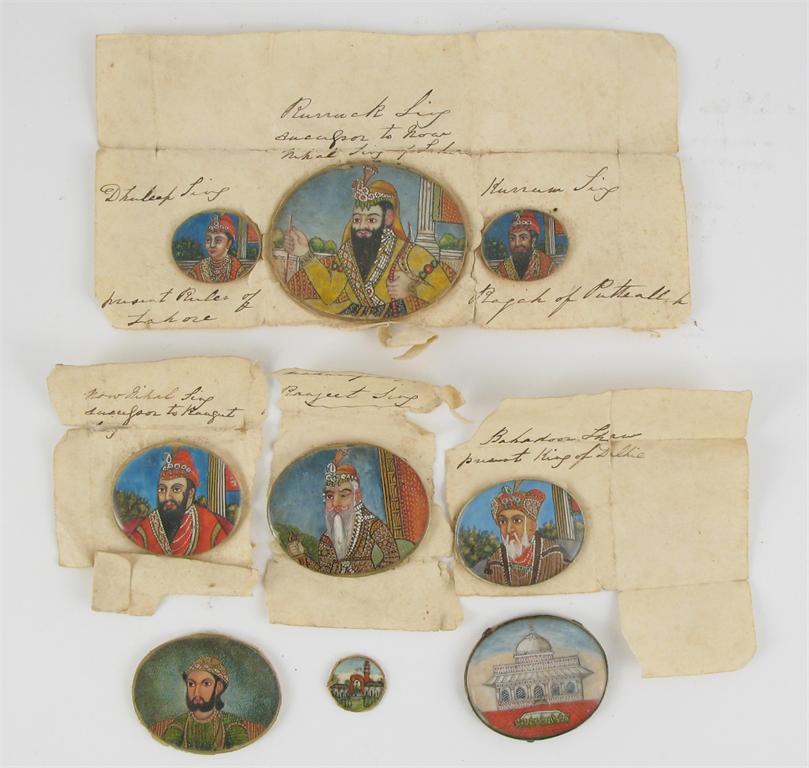 Kurruck Sing
sucessor to Now
Nihal Sing of Lahore
Dhuleep Sing
present Ruler of
Lahore
Kurrum Sing
Rajah of Putteallah
Now Nihal Sing
sucessor to Runjeet
Sing
Runjeet Sing
Bahadoor Shaw
present King of Delhie